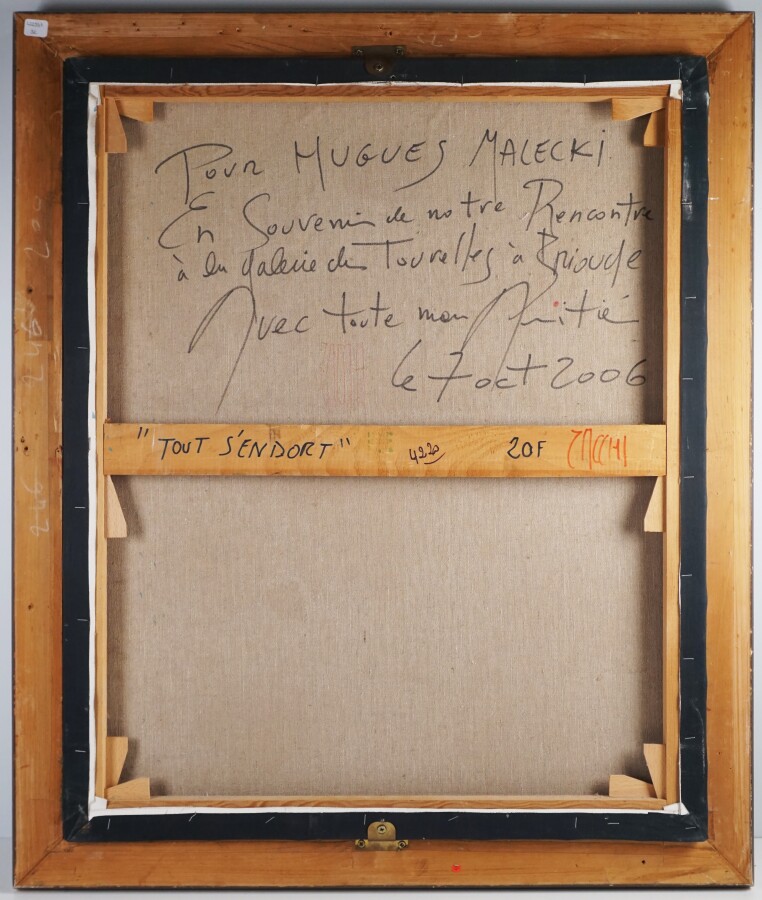 Pour HUGUES MALECKI
En Souvenir de notre Rencontre
à la Galerie des Tourelles à Brioude
Avec toute mon Amitié
le 7 oct 2006
"TOUT S'ENDORT" 4220 20F